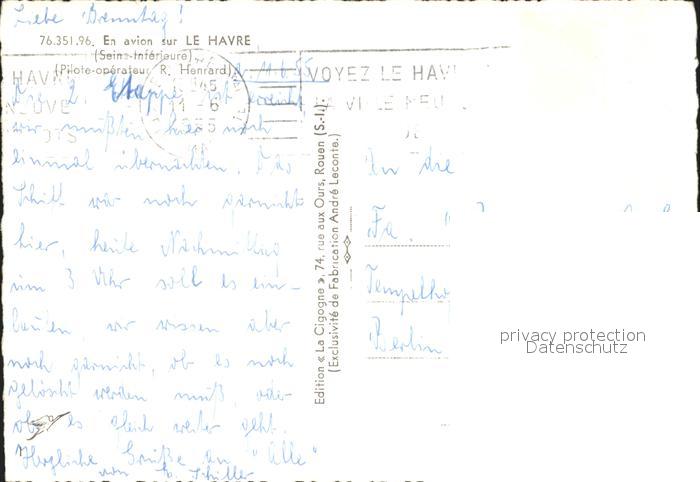 Liebe Brenntag!
76.351.96. En avion sur LE HAVRE
(Seine-Inférieure)
(Pilote-opérateur R. Henrard)
11.6.55
HAVRE
NEUVE
11 - 6
VOYEZ LE HAV
LA VILLE NEU
Die 2. Etappe ist erreicht,
wir mußten hier noch
einmal übernachten. Das
Schiff war noch garnicht
hier, heute Nachmittag
um 3 Uhr soll es ein-
laufen, wir wissen aber
noch garnicht, ob es noch
gelöscht werden muß, oder
ob es gleich weiter geht.
Herzliche Grüße an "Alle"
von
Edition « La Cigogne », 74, rue aux Ours, Rouen (S.-I.)
(Exclusivité de Fabrication André Leconte.)
An die
Fa. "
Tempelho
Berlin
privacy protection
Datenschutz